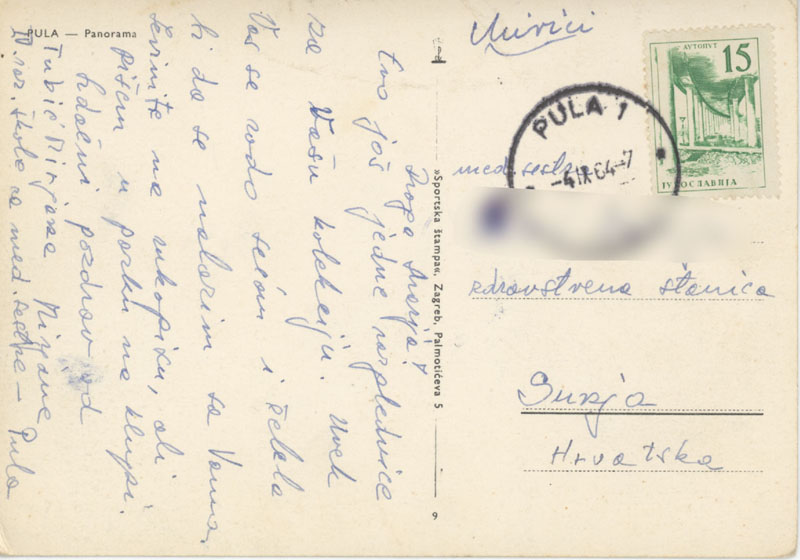 PULA — Panorama
Draga Marija!
Evo još jedne razglednice
za Vašu kolekciju. Uvek
Vas se rado sećam i želela
bi da se nalazim sa Vama.
na rukopisu, ali
pišem u parku na klupi.
Srdačni pozdrav od
Tubić Mirjane
IV raz. škole za med. sestre – Pula
»Sportska štampa«, Zagreb, Palmotićeva 5
9
АУТОПУТ
15
ЈУГОСЛАВИЈА
PULA 1
-4 IX 64-7
med. sestr
zdravstvena stanica
Sunja
Hrvatska